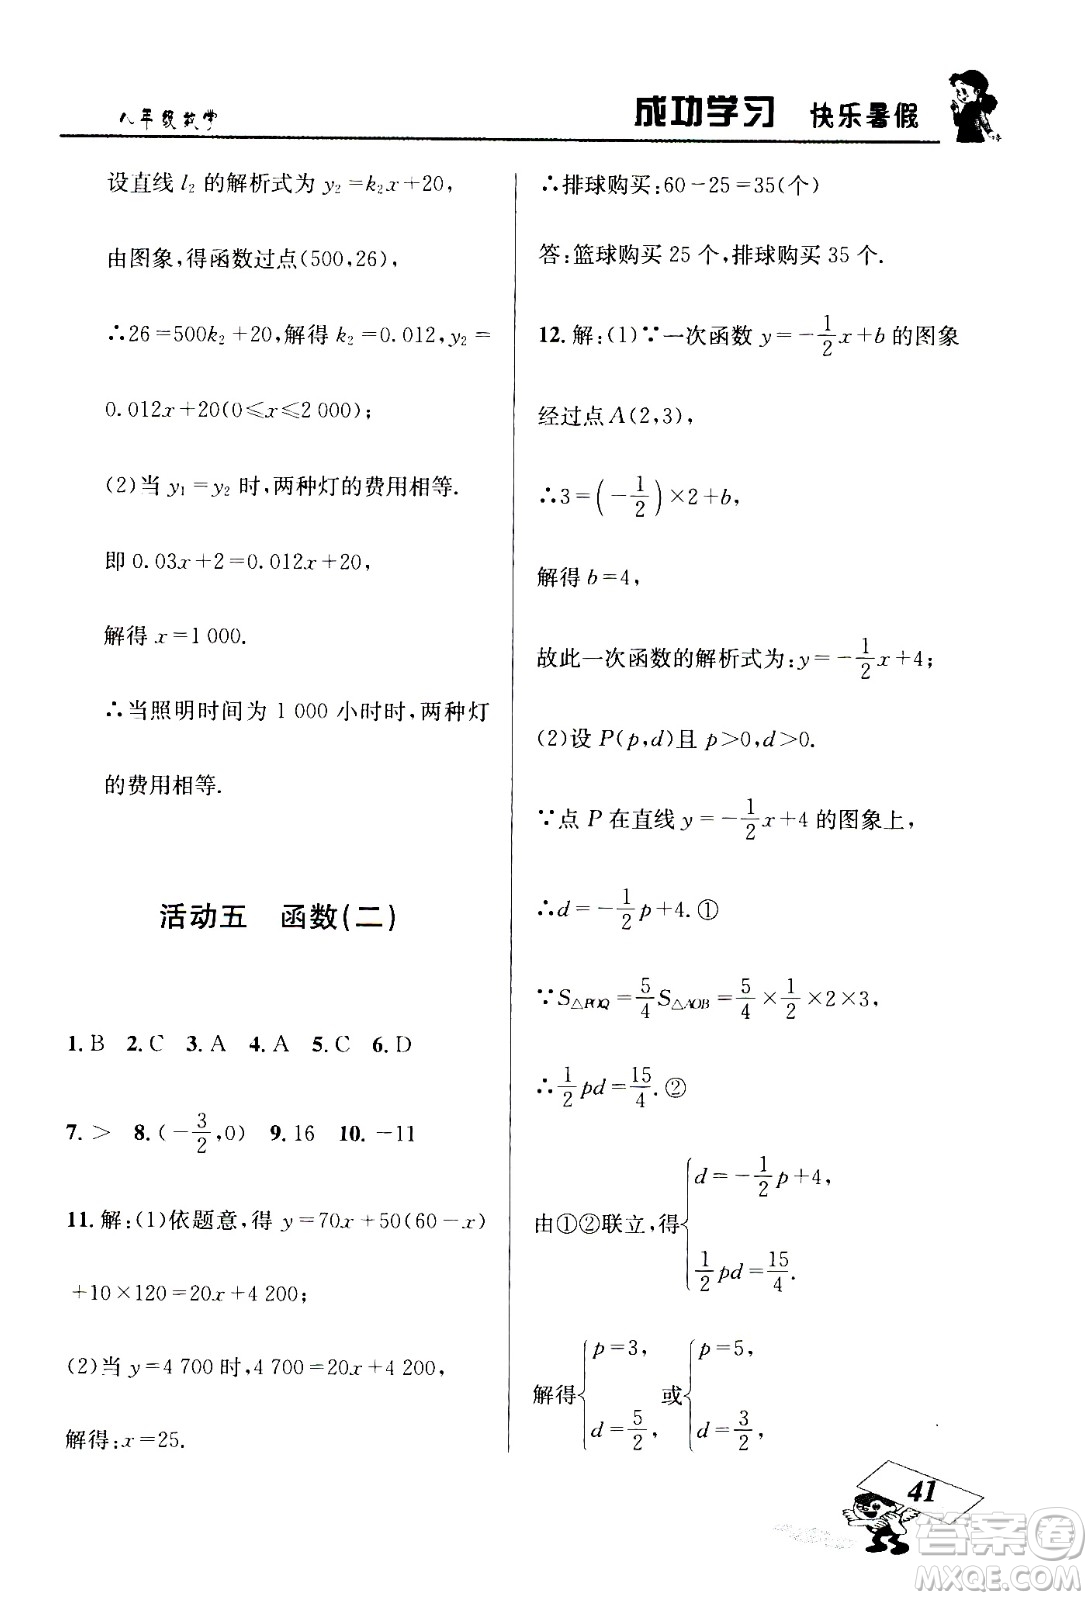 八年级数学
成功学习 快乐暑假
设直线 l₂ 的解析式为 y₂=k₂x+20,
由图象,得函数过点(500,26),
∴26=500k₂+20,解得 k₂=0.012,y₂=
0.012x+20(0≤x≤2 000);
(2)当 y₁=y₂ 时,两种灯的费用相等.
即 0.03x+2=0.012x+20,
解得 x=1 000.
∴当照明时间为 1 000 小时时,两种灯
的费用相等.
活动五 函数(二)
1.B 2.C 3.A 4.A 5.C 6.D
7.> 8.(-3/2,0) 9.16 10.-11
11.解:(1)依题意,得 y=70x+50(60-x)
+10×120=20x+4 200;
(2)当 y=4 700 时,4 700=20x+4 200,
解得:x=25.
∴排球购买:60-25=35(个)
答:篮球购买 25 个,排球购买 35 个.
12.解:(1)∵一次函数 y=-1/2x+b 的图象
经过点 A(2,3),
∴3=(-1/2)×2+b,
解得 b=4,
故此一次函数的解析式为:y=-1/2x+4;
(2)设 P(p,d)且 p>0,d>0.
∵点 P 在直线 y=-1/2x+4 的图象上,
∴d=-1/2p+4.①
∵S△POQ=5/4S△AOB=5/4×1/2×2×3,
∴1/2pd=15/4.②
由①②联立,得{d=-1/2p+4,
1/2pd=15/4.
解得{p=3, d=5/2, 或{p=5, d=3/2,
41
答案卷
MXQE.COM